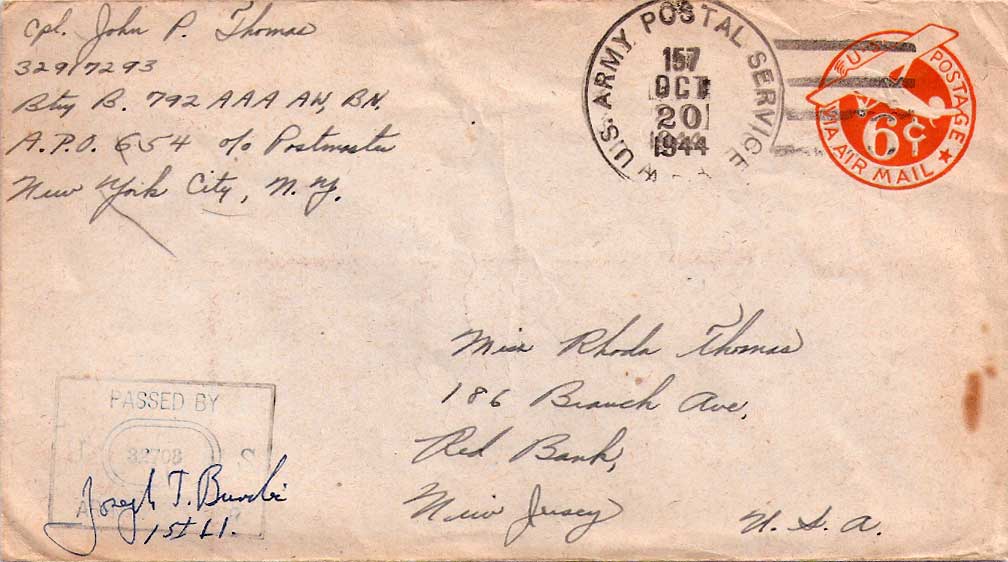 Cpl. John P. Thomas
32917293
Bty B. 792 AAA AW, BN.
A.P.O. 654 c/o Postmaster
New York City, N.Y.
U.S. ARMY POSTAL SERVICE
157
OCT
20
1944
U.S. POSTAGE
6¢
VIA AIR MAIL
Miss Rhoda Thomas
186 Branch Ave,
Red Bank,
New Jersey
U. S. A.
PASSED BY
32708
S
Joseph T.
1st Lt.